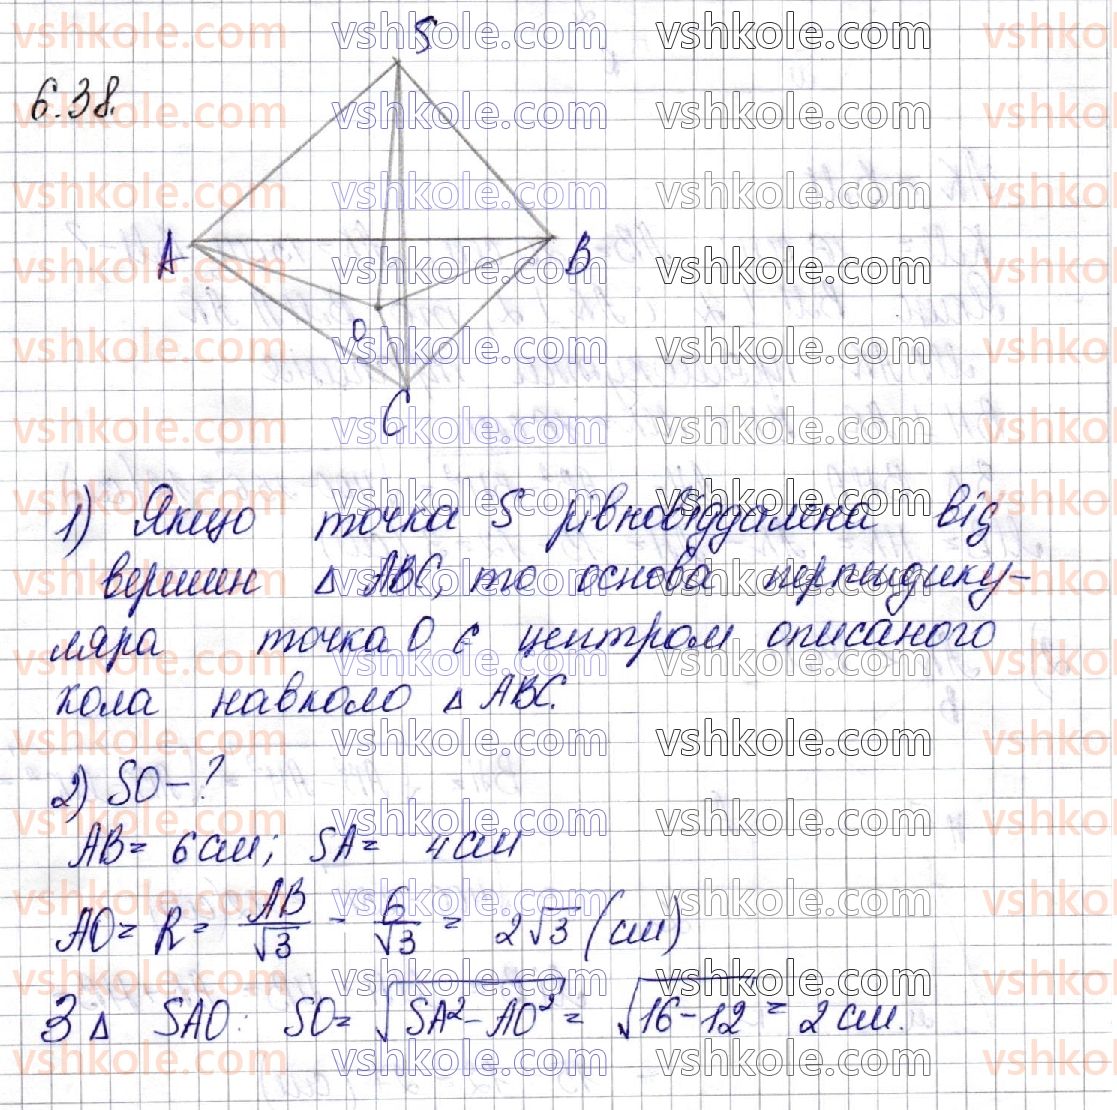 S
6.38.
A
B
O
C
1) Якщо точка S рівновіддалена від
вершин Δ ABC, то основа перпендику-
ляра точка O є центром описаного
кола навколо Δ ABC.
2) SO - ?
AB = 6 см; SA = 4 см
AO = R = AB/√3 = 6/√3 = 2√3 (см)
З Δ SAO: SO = √(SA² - AO²) = √(16 - 12) = 2 см.
vshkole.com